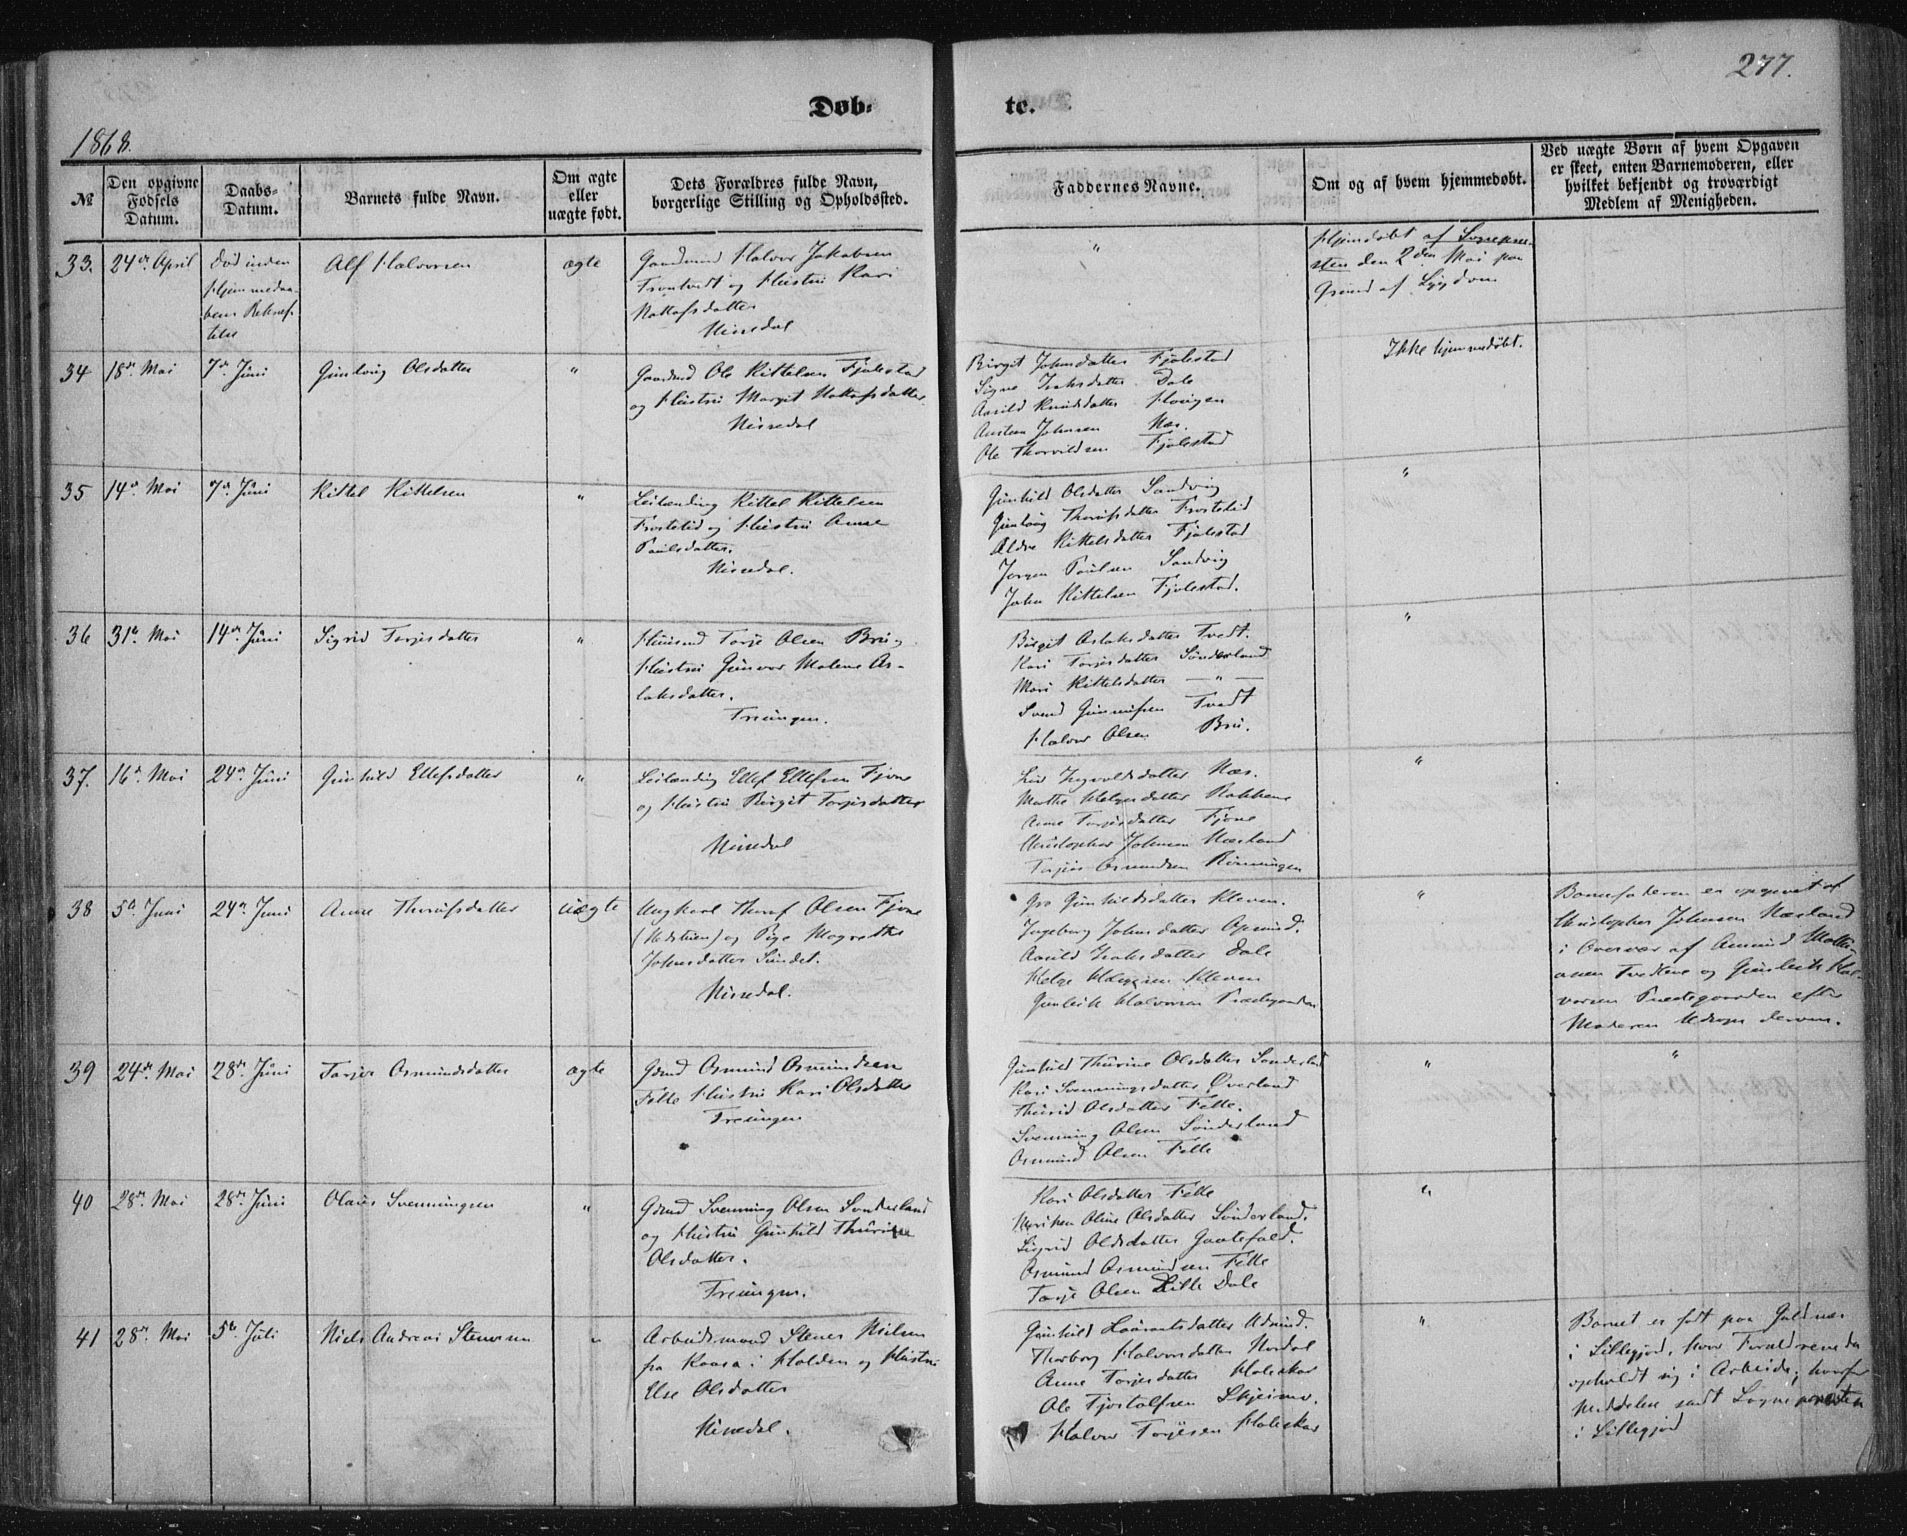 277.
Døb-
te.
1868.
№
Den opgivne Fødsels Datum.
Daabs-Datum.
Barnets fulde Navn.
Om ægte eller uægte født.
Dets Forældres fulde Navn, borgerlige Stilling og Opholdssted.
Faddernes Navne.
Om og af hvem hjemmedøbt.
Ved uægte Børn af hvem Opgaven er skeet, enten Barnemoderen, eller hvilket bekjendt og troværdigt Medlem af Menigheden.
33.
24de April
Død inden
Hjemmedaa-
bens Bekræf-
telse
Alf Halvorsen
ægte
Gaardmd Halvor Jakobsen
Trontvedt og Hustru Kari
Nottofsdatter
Nissedal
"
Hjemdøbt af Sognepræ-
sten den 2den Mai paa
Grund af Sygdom
34
18de Mai
7de Juni
Gunlaug Olsdatter
"
Gaardmd Ole Kittelsen Fjalestad
og Hustru Margit Nottofsdatter
Nissedal
Birgit Johnsdatter Fjalestad
Signe Isaksdatter Dale
Aasild Knudsdatter Haugen
Austen Johnsen Næs.
Ole Thorvildsen Fjalestad
Ikke hjemmedøbt.
35
14de Mai
7de Juni
Kittel Kittelsen
"
Leilænding Kittel Kittelsen
Frostelid og Hustru Anne
Paulsdatter.
Nissedal.
Gunhild Olsdatter Sandvig
Gunlaug Thorufsdatter Frostelid
Aldre Kittelsdatter Fjalestad
Jørgen Paulsen Sandvig
John Kittelsen Fjalestad.
"
36
31te Mai
14de Juni
Sigrid Torjesdatter
"
Huusmd Torje Olsen Bru og
Hustru Gunvor Malene As-
laksdatter.
Treungen.
Birgit Aslaksdatter Tvedt.
Kari Torjesdatter Sønderland
Mari Kittelsdatter — " —
Svend Gunnufsen Tvedt
Halvor Olsen Bru.
"
37.
16de Mai
24de Juni
Gunhild Ellefsdatter
"
Leilænding Ellef Ellefsen Fjone
og Hustru Birgit Torjesdatter
Nissedal
Liv Ingvoldsdatter Næs.
Marthe Helgesdatter Bakkene
Anne Torjesdatter Fjone
Christopher Johnsen Næsland
Torjus Osmundsen Rønningen
"
38
5te Juni
24de Juni
Anne Thorufsdatter
uægte
Ungkarl Thoruf Olsen Fjone
(Nedstuen) og Pige Magrethe
Johnsdatter Sundet.
Nissedal.
Gro Gunhildsdatter Kleven.
Ingeborg Johnsdatter Opsund.
Aasild Isaksdatter Dale
Helge Helgesen Kleven
Gunleik Halvorsen Præstegaarden
"
Barnefaderen er opgivet af
Christopher Johnsen Næsland
i Overvær af Amund Matti-
asen Tvedtene og Gunleik Hal-
vorsen Præstegaarden efter
Moderens Udsagn derom.
39
24de Mai
28de Juni
Torjer Osmundsdatter
ægte
Gdmd Osmund Osmundsen
Felle Hustru Kari Olsdatter
Treungen
Gunhild Thurine Olsdatter Sønderland
Kari Svenningsdatter Øverland
Thurid Olsdatter Felle.
Svenning Olsen Sønderland
Osmund Olsen Felle
"
"
40
28de Mai
28de Juni
Olaus Svenningsen
"
Gdmd Svenning Olsen Sønderland
og Hustru Gunhild Thurine
Olsdatter.
Treungen.
Kari Olsdatter Felle
Mariken Oline Olsdatter Sønderland.
Sigrid Olsdatter Gautefald.
Osmund Osmundsen Felle
Torje Olsen Lille Dale
"
41
28de Mai
5te Juli
Niels Andreas Stenersen
"
Arbeidsmand Stener Nielsen
fra Kaasa i Holden og Hustru
Else Olsdatter
Nissedal.
Gunhild Lauransdatter Udsund.
Thorborg Halvorsdatter Nordal
Anne Torjesdatter Haleskar
Ole Fjostolfsen Skjeimo.
Halvor Torjesen Haleskar
"
Barnet er født paa Galdnæs
i Sillegjord, hvor Forældrene da
opholdt sig i Arbeide, hvorfor
Meddelse sendt Sognepræsten
i Sillegjord